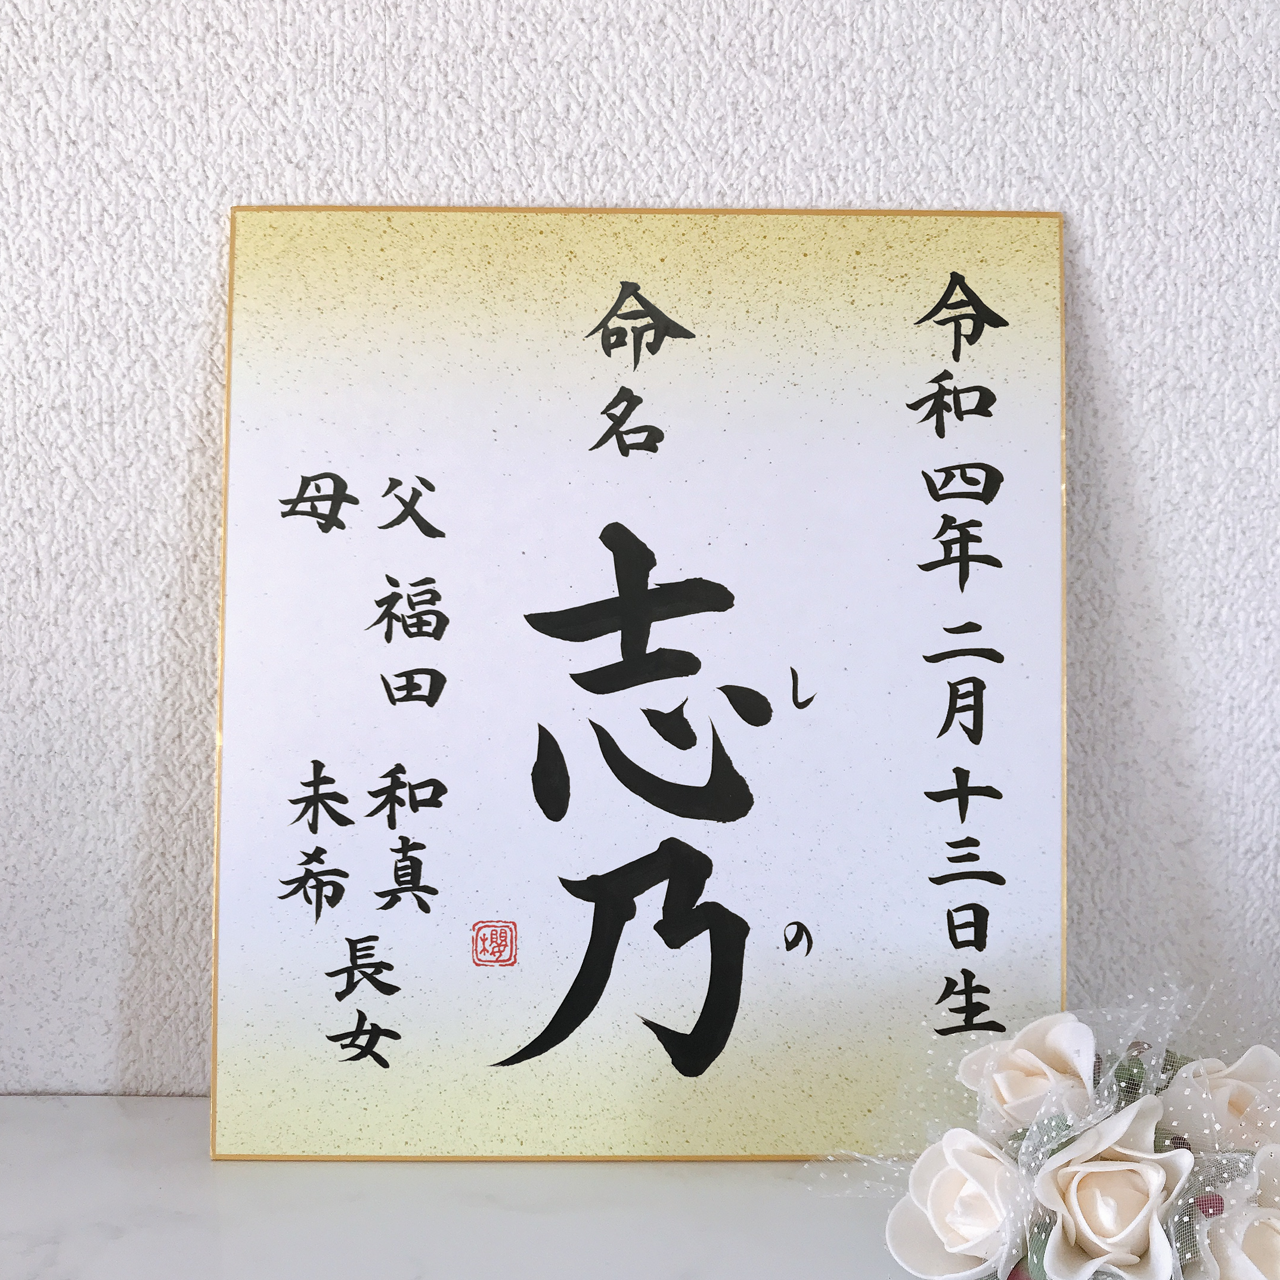 令和四年二月十三日生
命名
志乃
しの
父 福田 和真
母 未希
長女
櫻